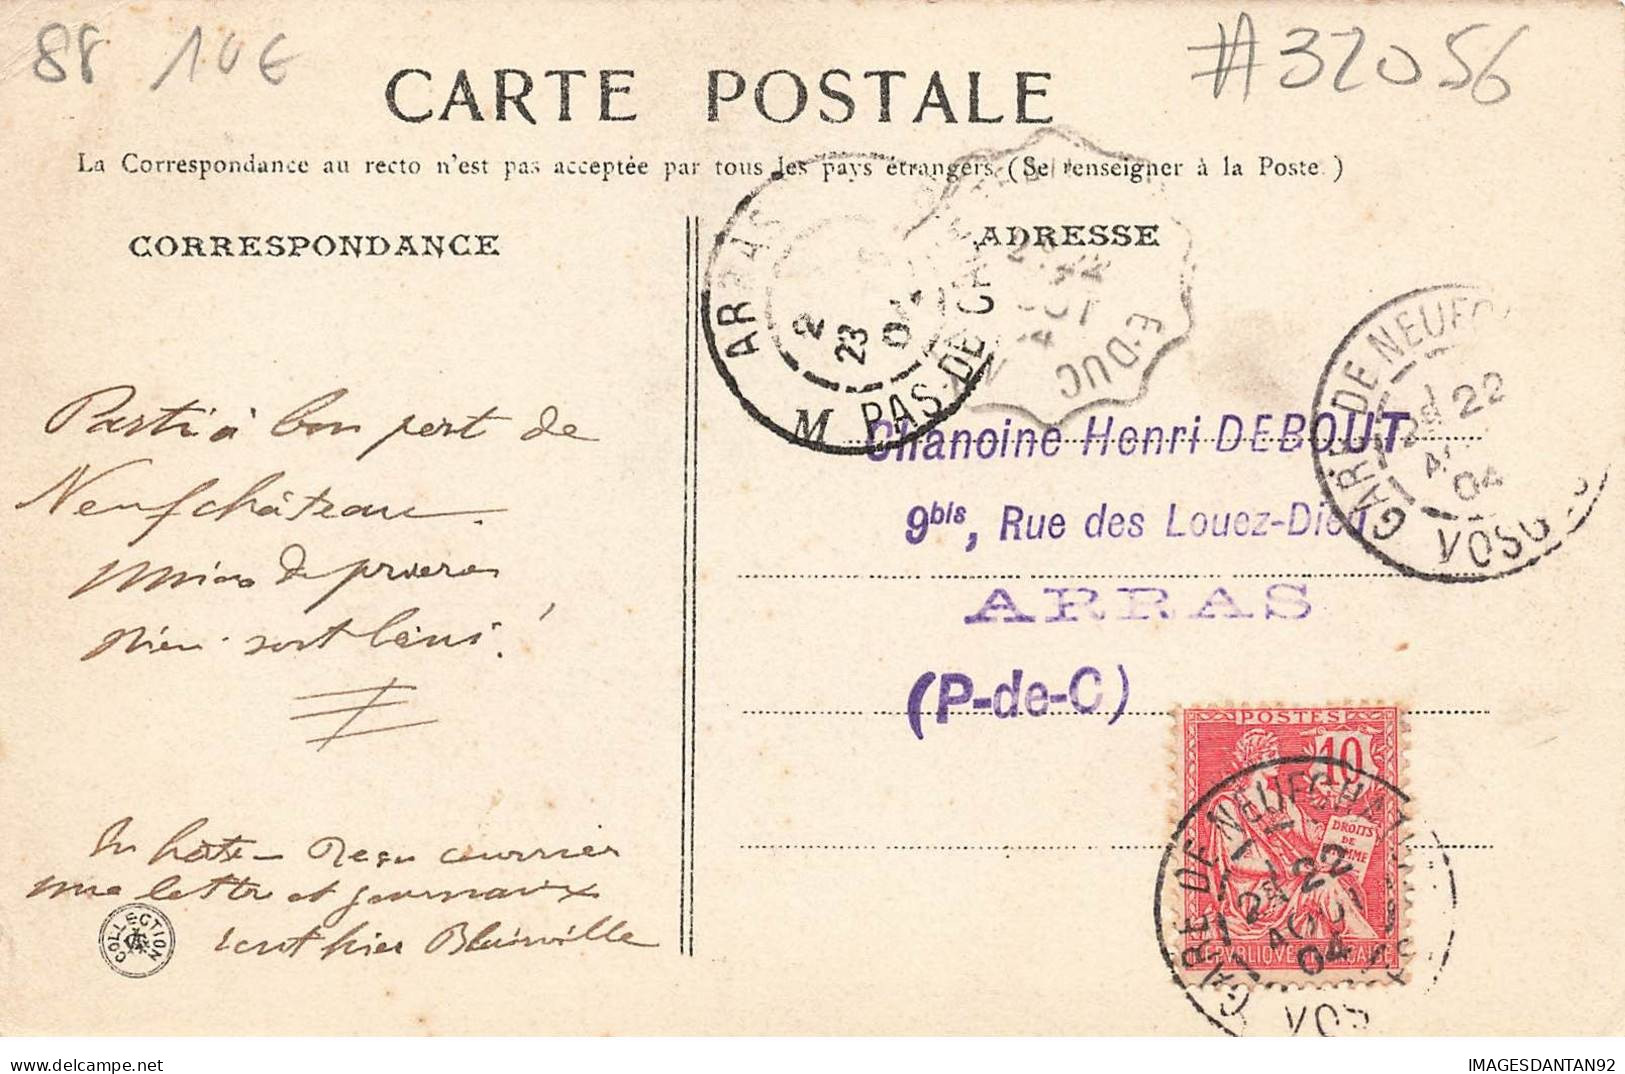 88 10€
#32056
CARTE POSTALE
La Correspondance au recto n'est pas acceptée par tous les pays étrangers (Se renseigner à la Poste.)
CORRESPONDANCE
ADRESSE
ARRAS
2
23
04
PAS-DE-CA
E-DUC
GARE DE NEUFC
22
04
VOSG
Chanoine Henri DEBOUT
9bis, Rue des Louez-Dieu
ARRAS
(P-de-C)
Parti à bon port de
Neufchâteau.
de prières
sort
En hâte - Reçu courrier
une lettre et journaux
écrit hier Blainville
COLLECTION
POSTES
10
DROITS
DE
HOMME
REPUBLIQUE FRANÇAISE
GARE DE NEUFCHAT
22
AOUT
04
VOSG
IMAGESDANTAN92